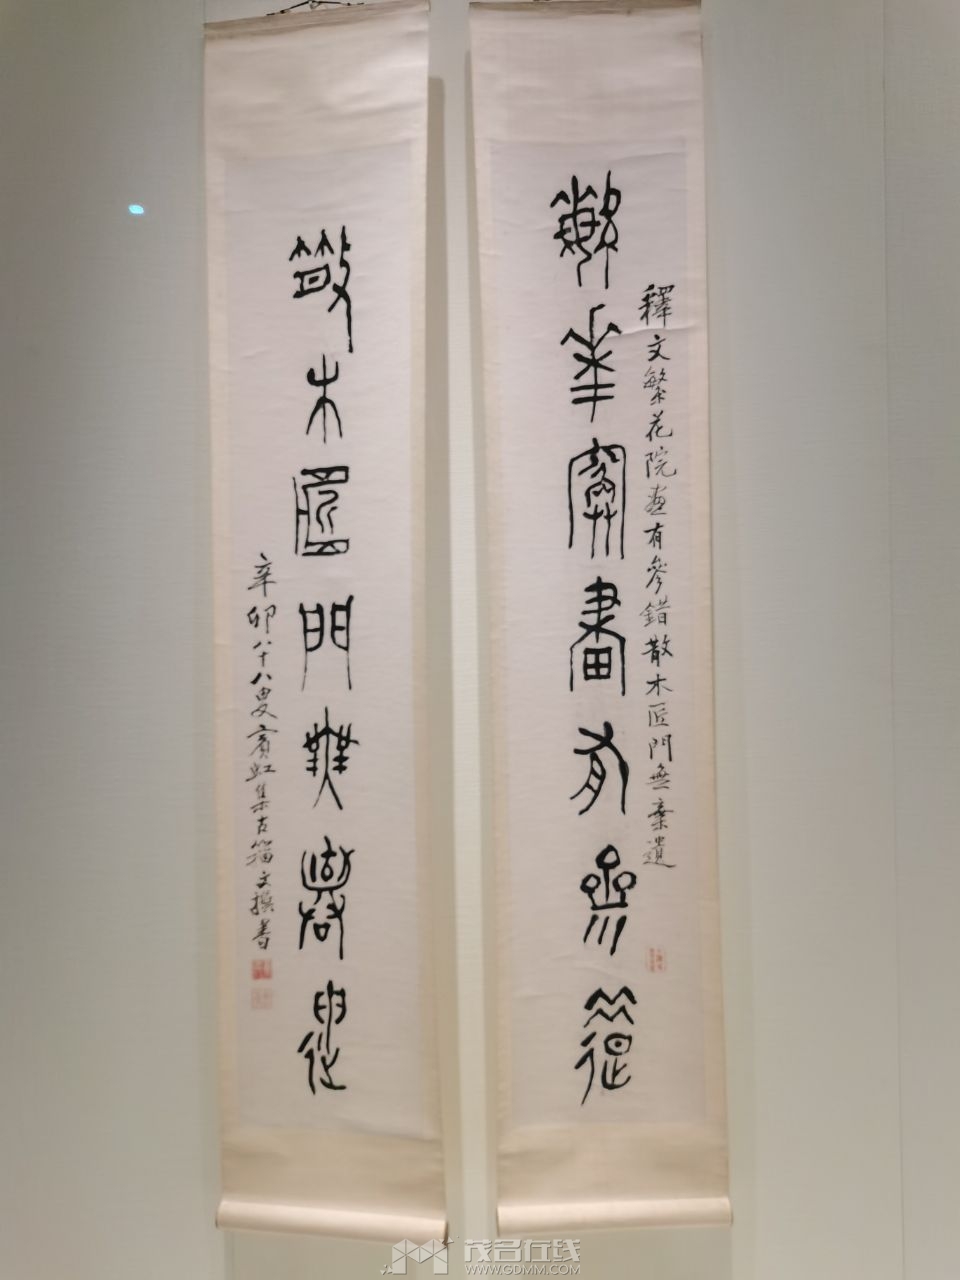 繁花院畫有參錯
釋文繁花院畫有參錯散木匠門無棄遺
散木匠門無棄遺
辛卯八十八叟賓虹集古籀文撰書
茂名在线
WWW.GDMM.COM